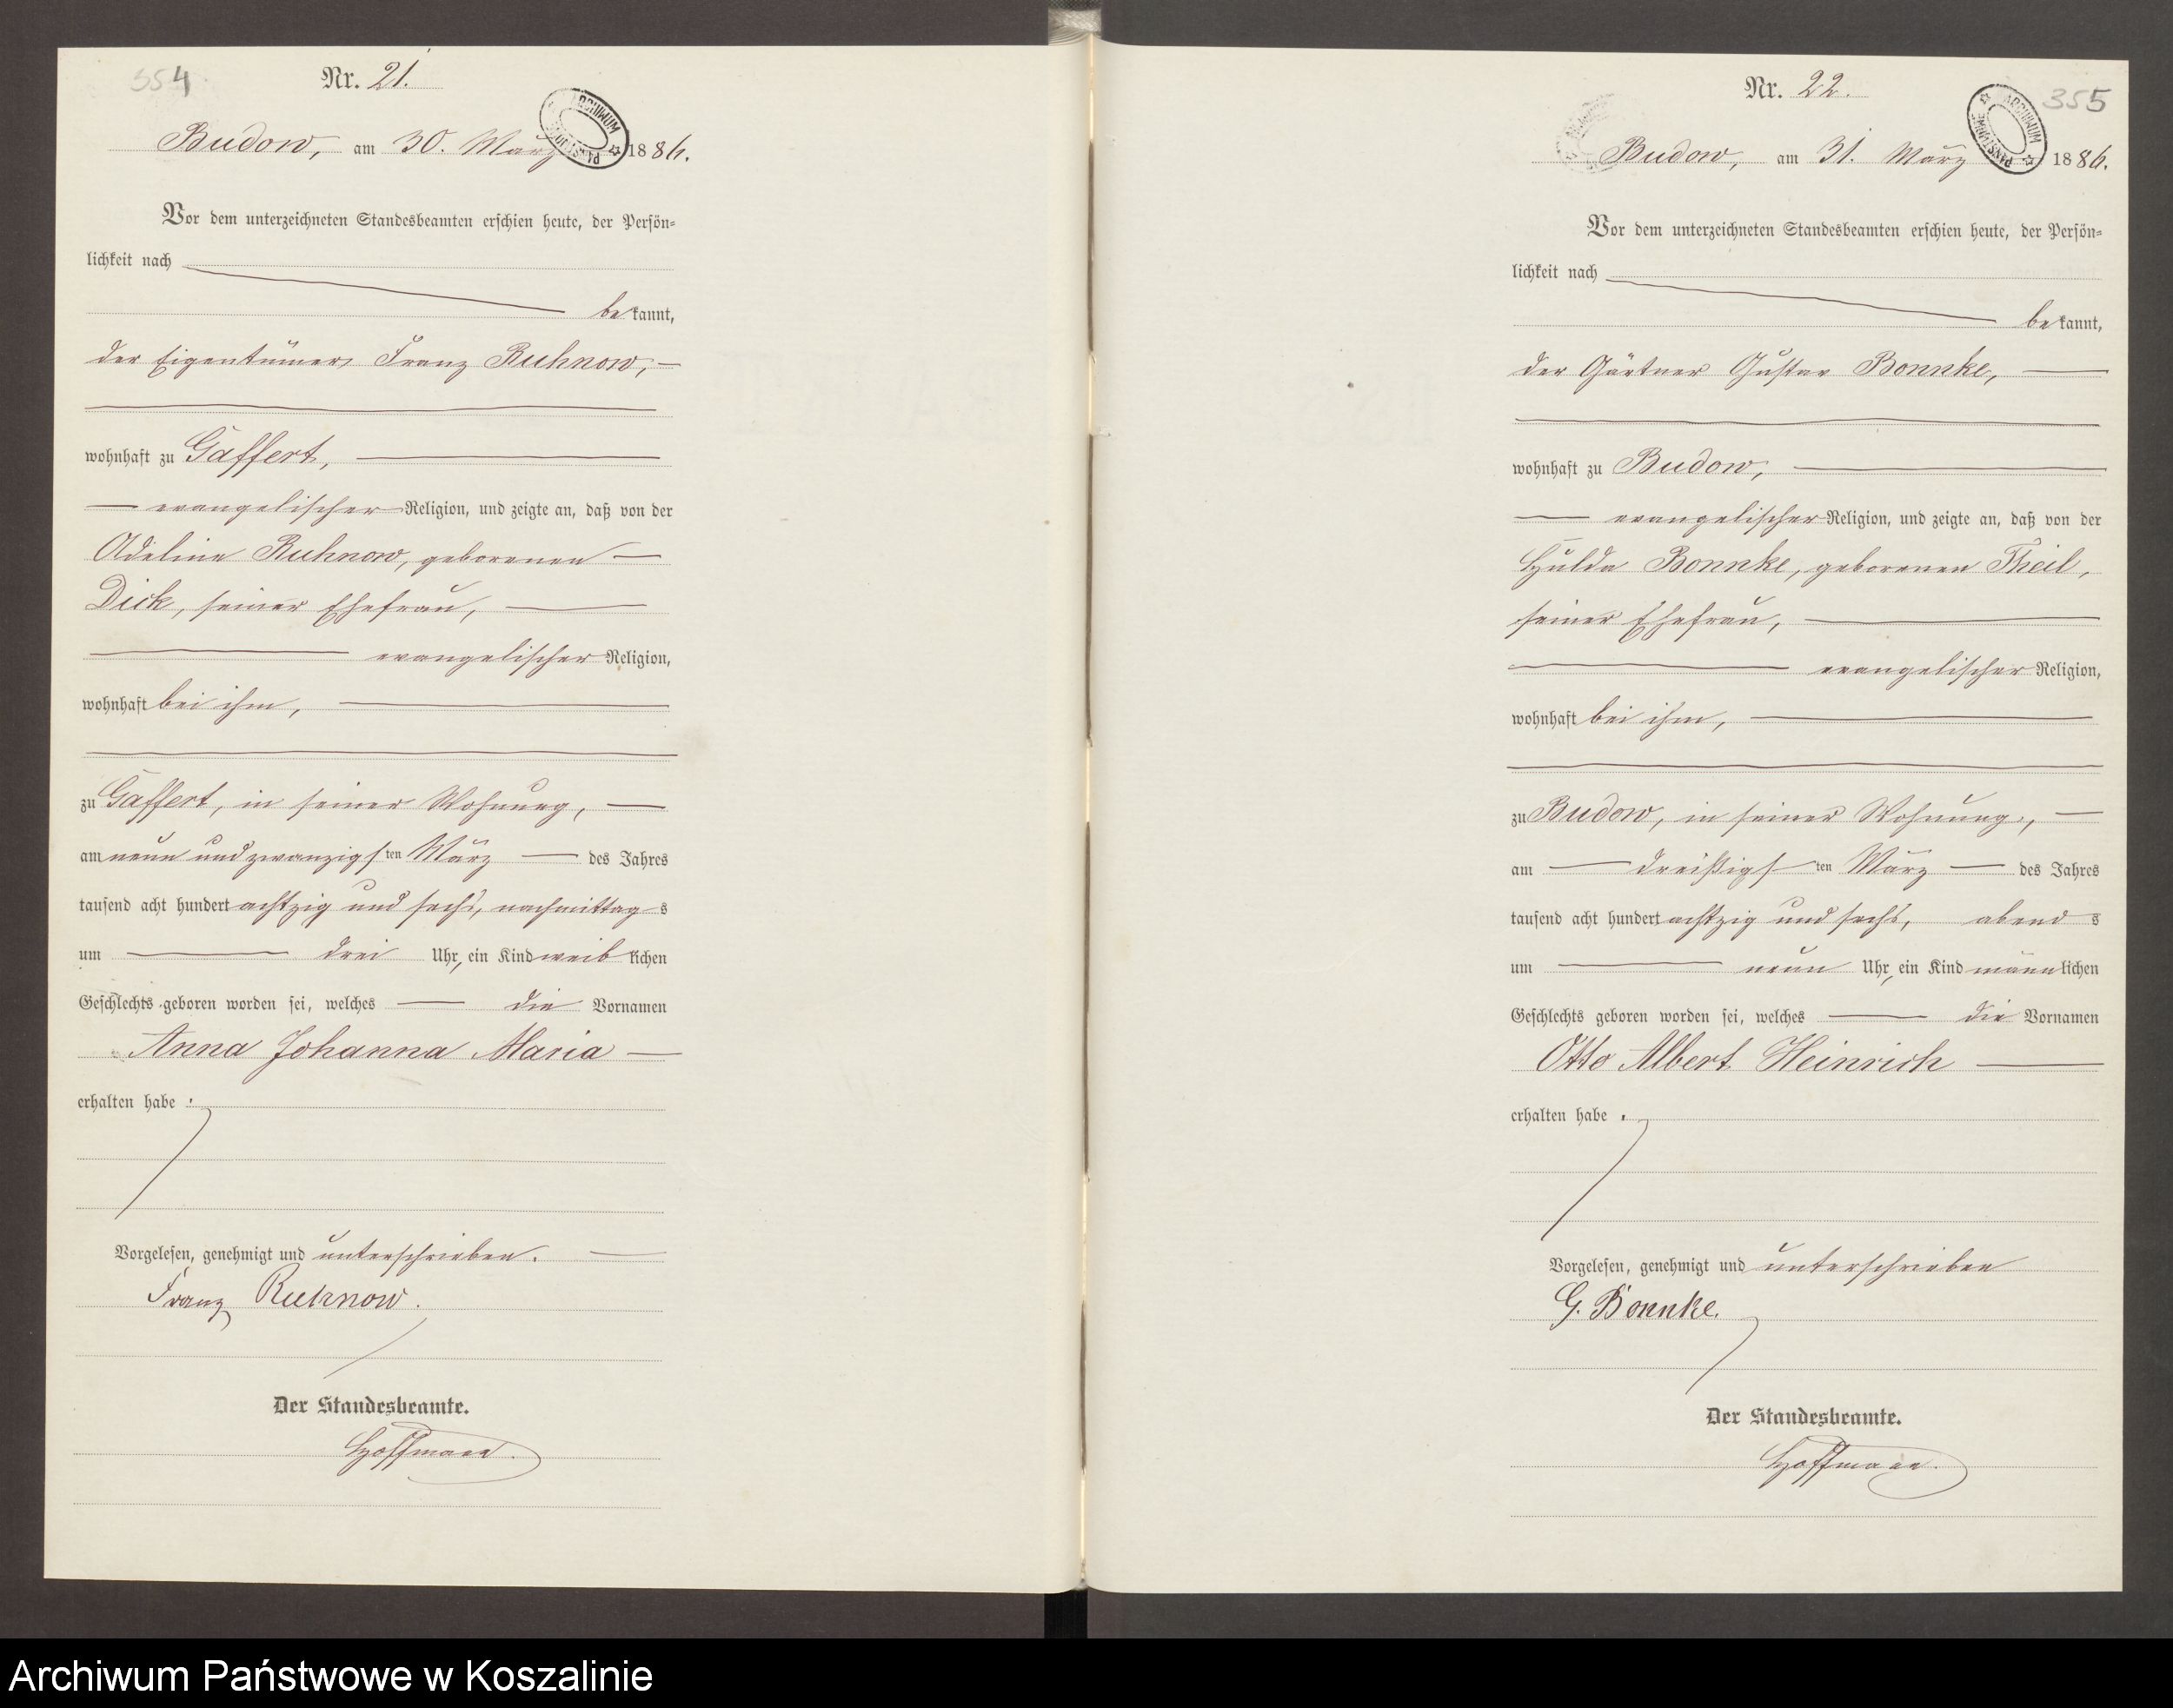 354
Nr. 21.
ARCHIWUM PAŃSTWOWE
Budow, am 30. März 1886.
Vor dem unterzeichneten Standesbeamten erschien heute, der Persön=
lichkeit nach
bekannt,
der Eigentümer Franz Ruhnow,
wohnhaft zu Gaffert,
evangelischer Religion, und zeigte an, daß von der
Adeline Ruhnow, geborenen
Dick, seiner Ehefrau,
evangelischer Religion,
wohnhaft bei ihm,
zu Gaffert, in seiner Wohnung,
am neun und zwanzigsten März des Jahres
tausend acht hundert achtzig und sechs, nachmittags
um drei Uhr, ein Kind weiblichen
Geschlechts geboren worden sei, welches die Vornamen
Anna Johanna Maria
erhalten habe.
Vorgelesen, genehmigt und unterschrieben.
Franz Ruhnow.
Der Standesbeamte.
Hoffmann.
355
Nr. 22.
ARCHIWUM PAŃSTWOWE
Budow, am 31. März 1886.
Vor dem unterzeichneten Standesbeamten erschien heute, der Persön=
lichkeit nach
bekannt,
der Gärtner Gustav Bonnke,
wohnhaft zu Budow,
evangelischer Religion, und zeigte an, daß von der
Hulda Bonnke, geborenen Theil,
seiner Ehefrau,
evangelischer Religion,
wohnhaft bei ihm,
zu Budow, in seiner Wohnung,
am dreißigsten März des Jahres
tausend acht hundert achtzig und sechs, abends
um neun Uhr, ein Kind männlichen
Geschlechts geboren worden sei, welches die Vornamen
Otto Albert Heinrich
erhalten habe.
Vorgelesen, genehmigt und unterschrieben
G. Bonnke.
Der Standesbeamte.
Hoffmann.
Archiwum Państwowe w Koszalinie